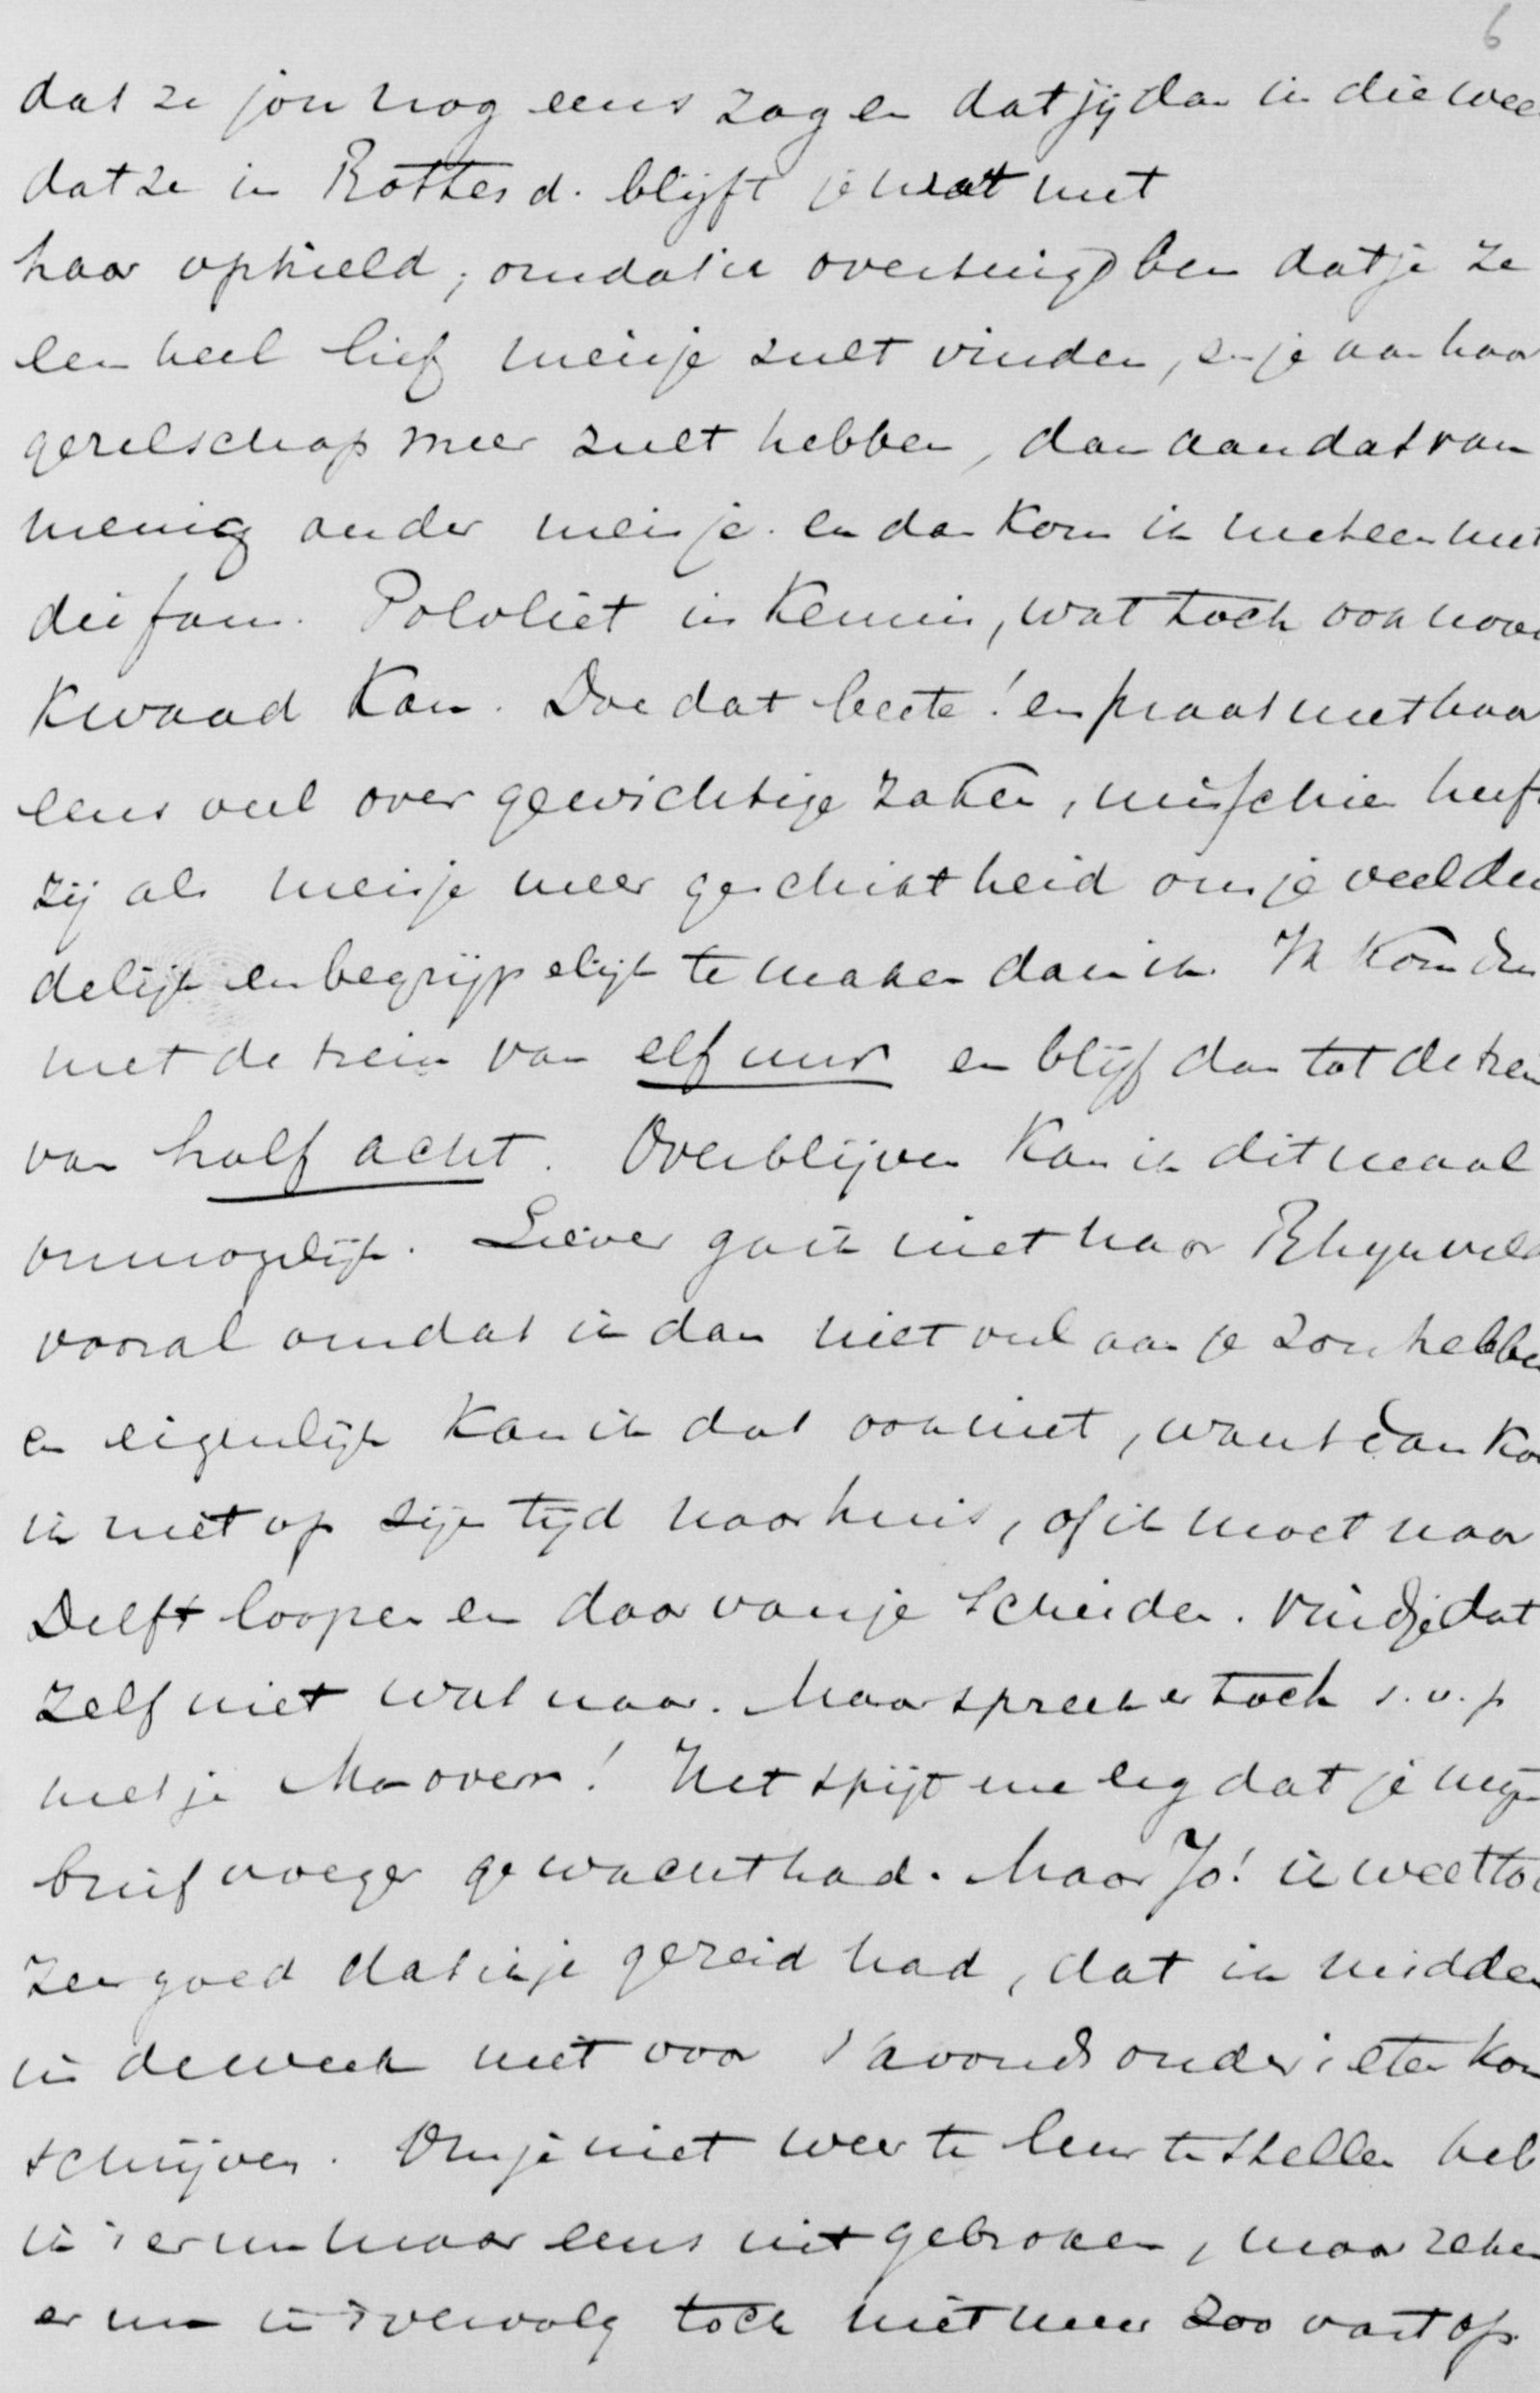 6
dat ze jou nog eens zag en dat jij dan in die wee
dat ze in Rotterd. blijft je wat met
haar ophield, omdat ik overtuigd ben dat je ze
een heel lief meisje zult vinden, en je aan haar
gezelschap meer zult hebben, dan aan dat van
menig ander meisje. en dan kom ik meteen met
die fam. Polvliet in kennis, wat toch ook geen
kwaad kan. Doe dat beste! en praat met haar
eens veel over gewichtige zaken, misschien heeft
zij als meisje meer geschiktheid om je veel dui
delijk en begrijpelijk te maken dan ik. Ik kom dus
met de trein van elf uur en blijf dan tot de trein
van half acht. Overblijven kan ik ditmaal
onmogelijk. Liever ga ik niet naar Rhijnveld
vooral omdat ik dan niet veel aan je zou hebben
en eigenlijk kan ik dat ook niet, want dan kom
ik niet op zijn tijd naar huis, of ik moet naar
Delft loopen en daar van je scheiden. Vind je dat
zelf niet wat naar. Maar spreek er toch s.v.p
met je Ma over! Het spijt me erg dat je mijn
brief vroeger gewacht had. Maar Jo! je weet toch
zeer goed dat ik je gezeid had, dat ik midden
in de week niet voor 's avonds onder 't eten kon
schrijven. Om je niet weer te leur te stellen heb
ik 't er nu maar eens uitgebroken, maar reken
er nu in 't vervolg toch niet meer zoo vast op